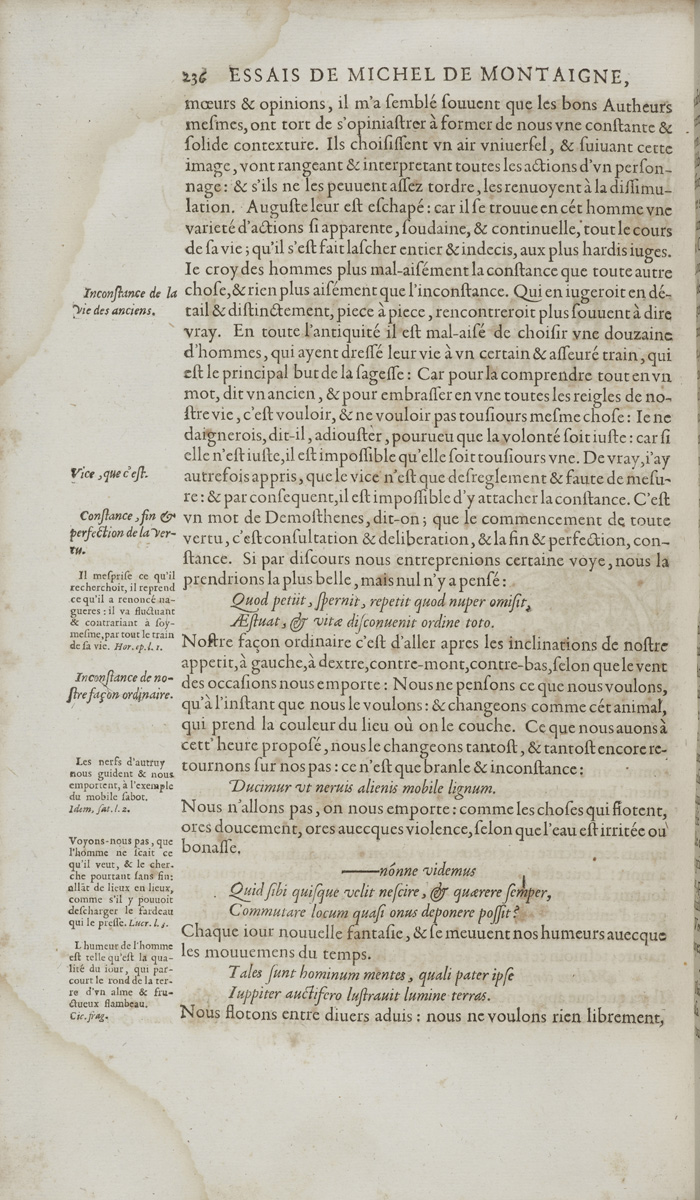 236 ESSAIS DE MICHEL DE MONTAIGNE,
mœurs & opinions, il m'a ſemblé ſouuent que les bons Autheurs
meſmes, ont tort de s'opiniaſtrer à former de nous vne conſtante &
ſolide contexture. Ils choiſiſſent vn air vniuerſel, & ſuiuant cette
image, vont rangeant & interpretant toutes les actions d'vn perſon-
nage: & s'ils ne les peuuent aſſez tordre, les renuoyent à la diſſimu-
lation. Auguſte leur eſt eſchapé: car il ſe trouue en cét homme vne
varieté d'actions ſi apparente, ſoudaine, & continuelle, tout le cours
de ſa vie; qu'il s'eſt fait laſcher entier & indecis, aux plus hardis iuges.
Ie croy des hommes plus mal-aiſément la conſtance que toute autre
Inconſtance de la
vie des anciens.
choſe, & rien plus aiſement que l'inconſtance. Qui en iugeroit en dé-
tail & diſtinctement, piece à piece, rencontreroit plus ſouuent à dire
vray. En toute l'antiquité il eſt mal-aiſé de choiſir vne douzaine
d'hommes, qui ayent dreſſé leur vie à vn certain & aſſeuré train, qui
eſt le principal but de la ſageſſe: Car pour la comprendre tout en vn
mot, dit vn ancien, & pour embraſſer en vne toutes les reigles de no-
ſtre vie, c'eſt vouloir, & ne vouloir pas touſiours meſme choſe: Ie ne
daignerois, dit-il, adiouſter, pourueu que la volonté ſoit iuſte: car ſi
elle n'eſt iuſte, il eſt impoſſible qu'elle ſoit touſiours vne. De vray, i'ay
Vice, que c'eſt.
autrefois appris, que le vice n'eſt que deſreglement & faute de meſu-
re: & par conſequent, il eſt impoſſible d'y attacher la conſtance. C'eſt
Conſtance, fin &
perfection de la ver-
tu.
vn mot de Demoſthenes, dit-on; que le commencement de toute
vertu, c'eſt conſultation & deliberation, & la fin & perfection, con-
ſtance. Si par diſcours nous entreprenions certaine voye, nous la
prendrions la plus belle, mais nul n'y a penſé:
Il meſpriſe ce qu'il
recherchoit, il reprend
ce qu'il a renoncé na-
gueres: il va fluctuant
& contrariant à ſoy-
meſme, par tout le train
de ſa vie. Hor. ep. l. 1.
Quod petiit, ſpernit, repetit quod nuper omiſit,
Æſtuat, & vitæ diſconuenit ordine toto.
Noſtre façon ordinaire c'eſt d'aller apres les inclinations de noſtre
appetit, à gauche, à dextre, contre-mont, contre-bas, ſelon que le vent
Inconſtance de no-
ſtre façon ordinaire.
des occaſions nous emporte: Nous ne penſons ce que nous voulons,
qu'à l'inſtant que nous le voulons: & changeons comme cét animal,
qui prend la couleur du lieu où on le couche. Ce que nous auons à
cett' heure propoſé, nous le changeons tantoſt, & tantoſt encore re-
tournons ſur nos pas: ce n'eſt que branle & inconſtance:
Les nerfs d'autruy
nous guident & nous
emportent, à l'exemple
du mobile ſabot.
Idem, ſat. l. 2.
Ducimur vt neruis alienis mobile lignum.
Nous n'allons pas, on nous emporte: comme les choſes qui flotent,
ores doucement, ores auecques violence, ſelon que l'eau eſt irritée ou
bonaſſe.
Voyons-nous pas, que
l'homme ne ſçait ce
qu'il veut, & le cher-
che pourtant ſans fin:
allãt de lieux en lieux,
comme s'il y pouuoit
deſcharger le fardeau
qui le preſſe. Lucr. l. 3.
——nónne videmus
Quid ſibi quiſque velit neſcire, & quærere ſemper,
Commutare locum quaſi onus deponere poſſit?
Chaque iour nouuelle fantaſie, & ſe meuuent nos humeurs auecque
les mouuemens du temps.
L'humeur de l'homme
eſt telle qu'eſt la qua-
lité du iour, qui par-
court le rond de la ter-
re d'vn alme & fru-
ctueux flambeau.
Cic. frag.
Tales ſunt hominum mentes, quali pater ipſe
Iuppiter auctifero luſtrauit lumine terras.
Nous flotons entre diuers aduis: nous ne voulons rien librement,